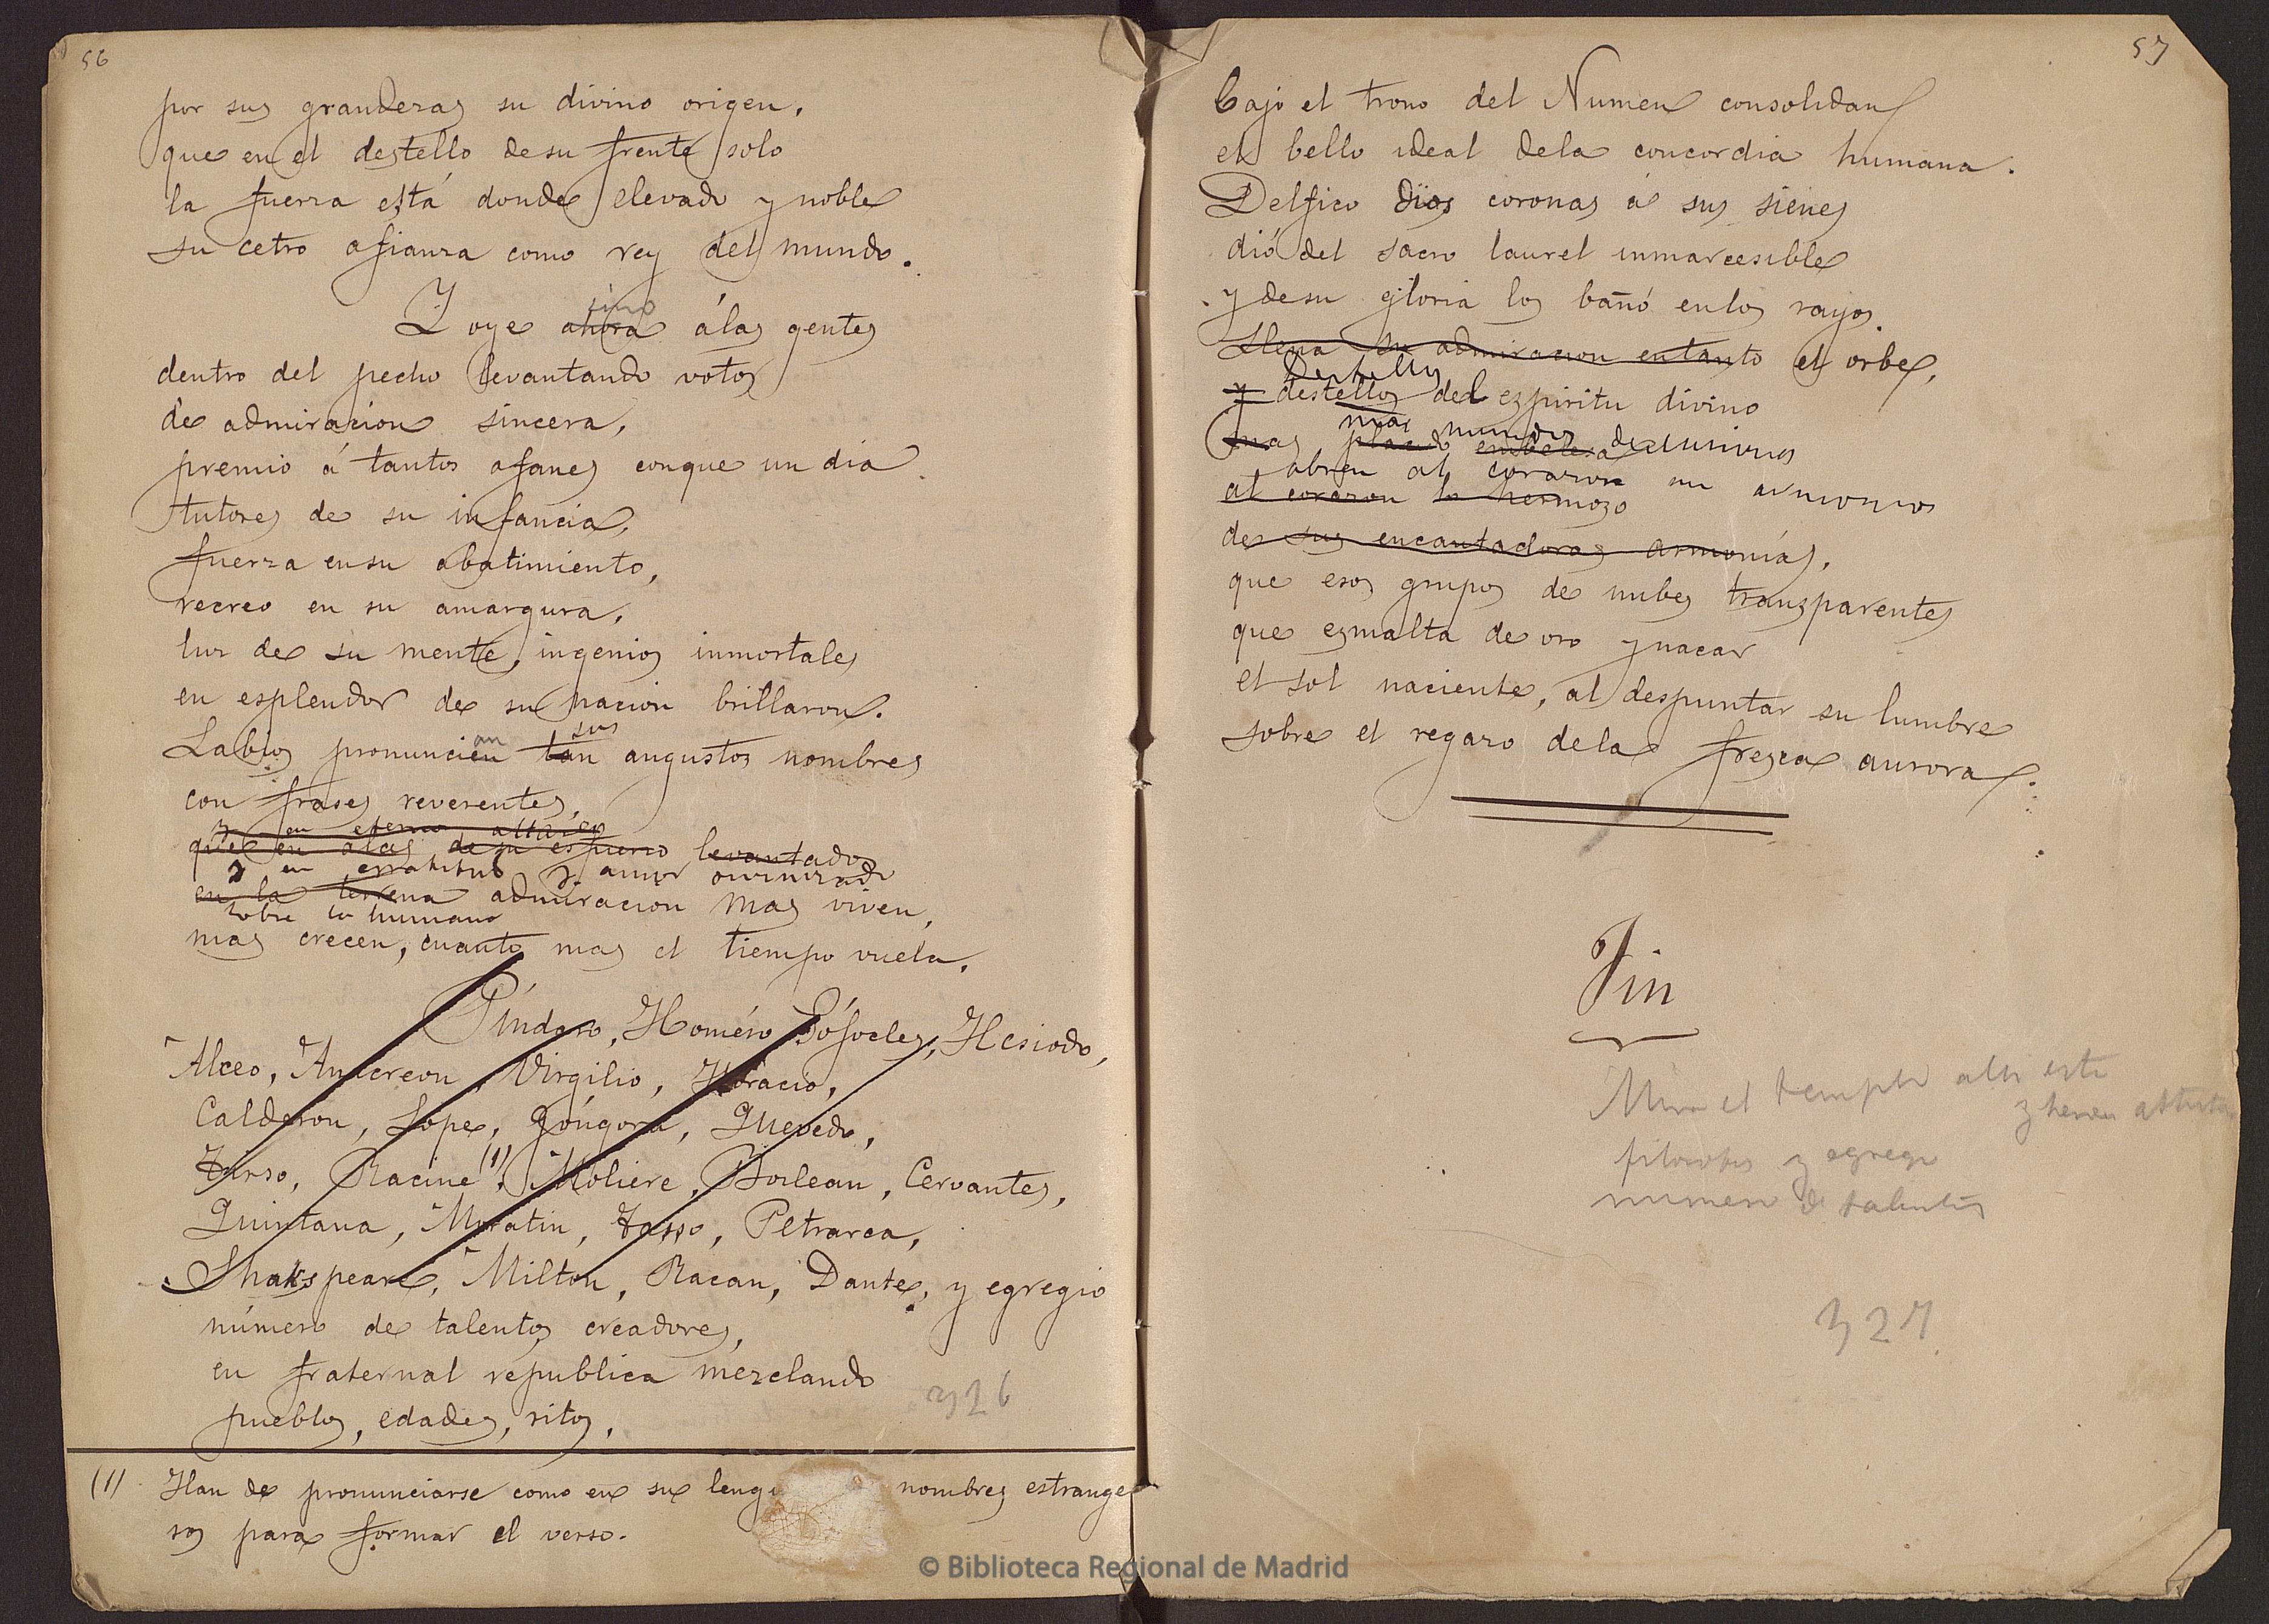 56
por sus granderas su divino origen,
que en el destello de su frente solo
la fuerza está donde elevado y noble
su cetro afianza como rey del mundo.
sino
Y oye ahora á las gentes
dentro del pecho levantando votos
de admiracion sincera,
premio á tantos afanes conque un dia
tutores de su infancia,
fuerza en su abatimiento,
recreo en su amargura,
luz de su mente, ingenios inmortales
en esplendor de su nacion brillaron.
an sus
Labios pronuncien tan augustos nombres
con frases reverentes,
y en eterno altares
que en alas de su esfuerzo levantados
y en gratitud y amor
en la terrena admiracion mas viven,
sobre lo humano
mas crecen, cuanto mas el tiempo vuela.
Píndaro, Homéro Sófocles, Hesiodo,
Alceo, Anacreon, Virgilio, Horacio,
Calderon, Lope, Góngora, Quevedo,
Tirso, Racine (1), Moliere, Boileau, Cervantes,
Quintana, Moratin, Tasso, Petrarca,
Shakspeare, Milton, Racan, Dante, y egregio
número de talentos creadores,
en fraternal republica mezclando
pueblos, edades, ritos,
326
(1) Han de pronunciarse como en su lengu nombres estrange
ros para formar el verso.
57
bajo el trono del Numen consolidan
el bello ideal dela concordia humana.
Delfico dios coronas á sus sienes
dió del sacro laurel inmarcesible
y de su gloria los bañó en los rayos.
Llena su admiracion entanto el orbe,
Destellos
y destellos del espiritu divino
mas mundos
mas placido embelesa
abren al corazon un
al corazon lo hermoso
de sus encantadoras armonías,
que esos grupos de nubes transparentes
que esmalta de oro y nacar
el sol naciente, al despuntar su lumbre
sobre el regazo dela fresca aurora.
Fin
Mira el templo alli esta
y tienen
filosofos y egregio
numero de talentos
327
© Biblioteca Regional de Madrid